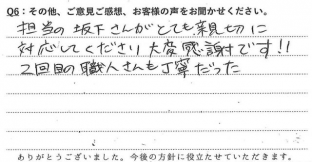 Q6：その他、ご意見ご感想、お客様の声をお聞かせください。
担当の坂下さんがとても親切に
対応してくださり大変感謝です!!
2回目の職人さんも丁寧だった
ありがとうございました。今後の方針に役立たせていただきます。